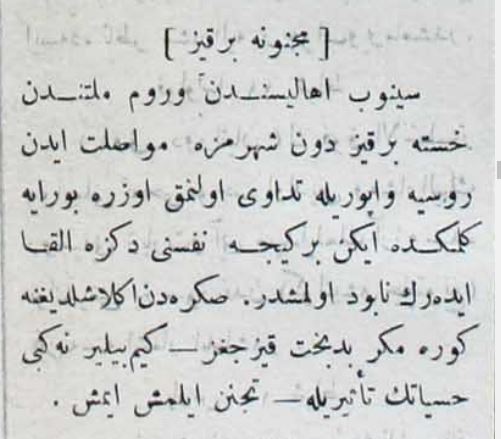 [ مجنونه بر قیز ]
سینوب اهالیسندن وروم ملتندن
خسته بر قیز دون شهرمزه مواصلت ایدن
روسیه واپوریله تداوی اولنمق اوزره بورایه
كلمكده ایكن بر كیجه نفسنی دكزه القا
ایده‌رك نابود اولمشدر. صكره‌دن اكلاشلدیغنه
كوره مكر بدبخت قیزجغز — كیم بیلیر نه كبی
حسیاتك تأثیریله — تجنن ایلمش ایمش .